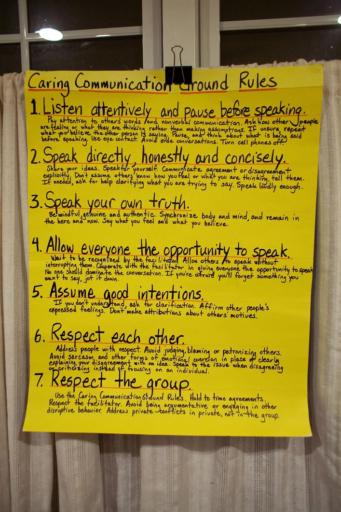 Caring Communication Ground Rules
1. Listen attentively and pause before speaking.
Pay attention to others words and nonverbal communication. Ask how other people
are feeling or what they are thinking rather than making assumptions. If unsure, repeat
what you believe the other person is saying. Pause and think about what is being said
before speaking. Use eye contact. Avoid side conversations. Turn cell phones off.
2. Speak directly, honestly and concisely.
Share your ideas. Speak for yourself. Communicate agreement or disagreement
explicitly. Don't assume others know how you feel or what you are thinking, tell them.
If needed, ask for help clarifying what you are trying to say. Speak loudly enough.
3. Speak your own truth.
Be mindful, genuine and authentic. Synchronize body and mind, and remain in
the here and now. Say what you feel and what you believe.
4. Allow everyone the opportunity to speak.
Wait to be recognized by the facilitator. Allow others to speak without
interrupting them. Cooperate with the facilitator in giving everyone the opportunity to speak.
No one should dominate the conversation. If you're afraid you'll forget something you
want to say, jot it down.
5. Assume good intentions.
If you don't understand, ask for clarification. Affirm other people's
expressed feelings. Don't make attributions about others motives.
6. Respect each other.
Address people with respect. Avoid judging, blaming or patronizing others.
Avoid sarcasm and other forms of emotional coercion in place of clearly
explaining your disagreement with an idea. Speak to the issue when disagreeing
or criticizing instead of focusing on an individual.
7. Respect the group.
Use the Caring Communication Ground Rules. Hold to time agreements.
Respect the facilitator. Avoid being argumentative or engaging in other
disruptive behavior. Address private conflicts in private, not in the group.